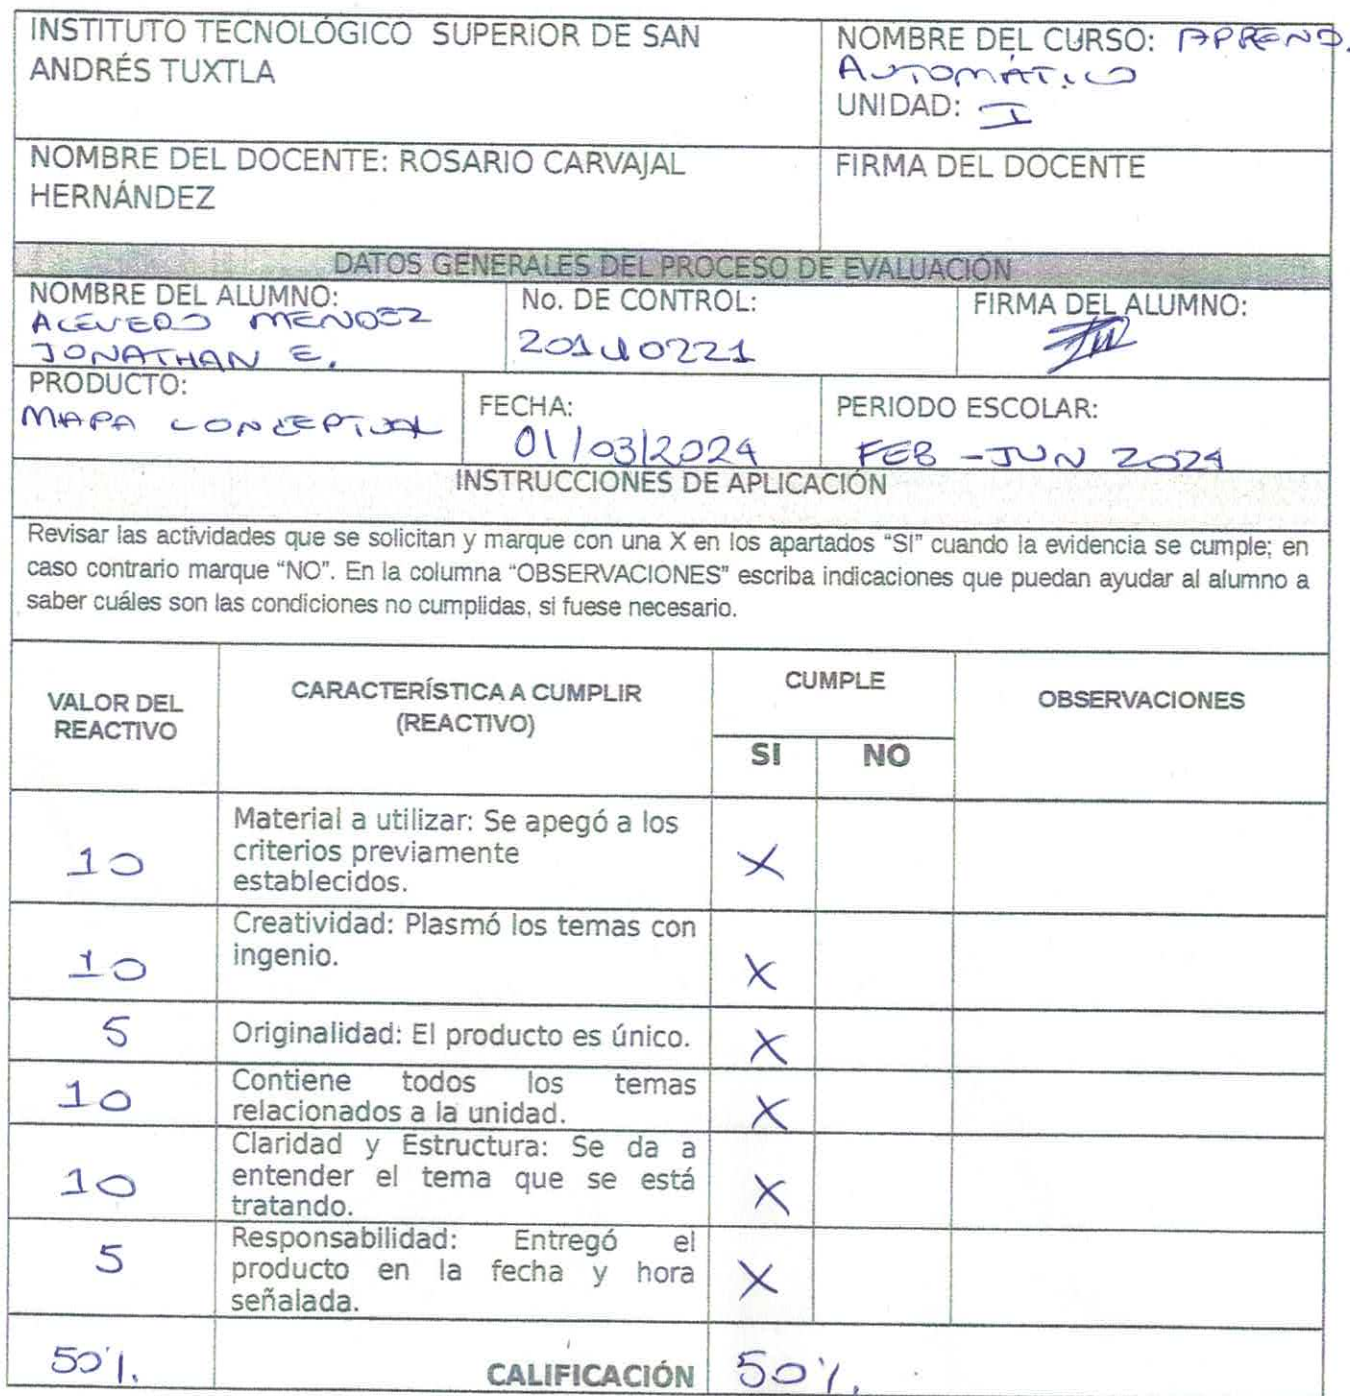 INSTITUTO TECNOLÓGICO SUPERIOR DE SAN
ANDRÉS TUXTLA
NOMBRE DEL CURSO: APREND.
AUTOMÁTICO
UNIDAD: I
NOMBRE DEL DOCENTE: ROSARIO CARVAJAL
HERNÁNDEZ
FIRMA DEL DOCENTE
DATOS GENERALES DEL PROCESO DE EVALUACIÓN
NOMBRE DEL ALUMNO:
ACEVEDO MENDEZ
JONATHAN E.
No. DE CONTROL:
201U0221
FIRMA DEL ALUMNO:
PRODUCTO:
MAPA CONCEPTUAL
FECHA:
01/03/2024
PERIODO ESCOLAR:
FEB - JUN 2024
INSTRUCCIONES DE APLICACIÓN
Revisar las actividades que se solicitan y marque con una X en los apartados “SI” cuando la evidencia se cumple; en
caso contrario marque “NO”. En la columna “OBSERVACIONES” escriba indicaciones que puedan ayudar al alumno a
saber cuáles son las condiciones no cumplidas, si fuese necesario.
VALOR DEL
REACTIVO
CARACTERÍSTICA A CUMPLIR
(REACTIVO)
CUMPLE
SI
NO
OBSERVACIONES
10
Material a utilizar: Se apegó a los
criterios previamente
establecidos.
X
10
Creatividad: Plasmó los temas con
ingenio.
X
5
Originalidad: El producto es único.
X
10
Contiene todos los temas
relacionados a la unidad.
X
10
Claridad y Estructura: Se da a
entender el tema que se está
tratando.
X
5
Responsabilidad: Entregó el
producto en la fecha y hora
señalada.
X
50%.
CALIFICACIÓN
50%.